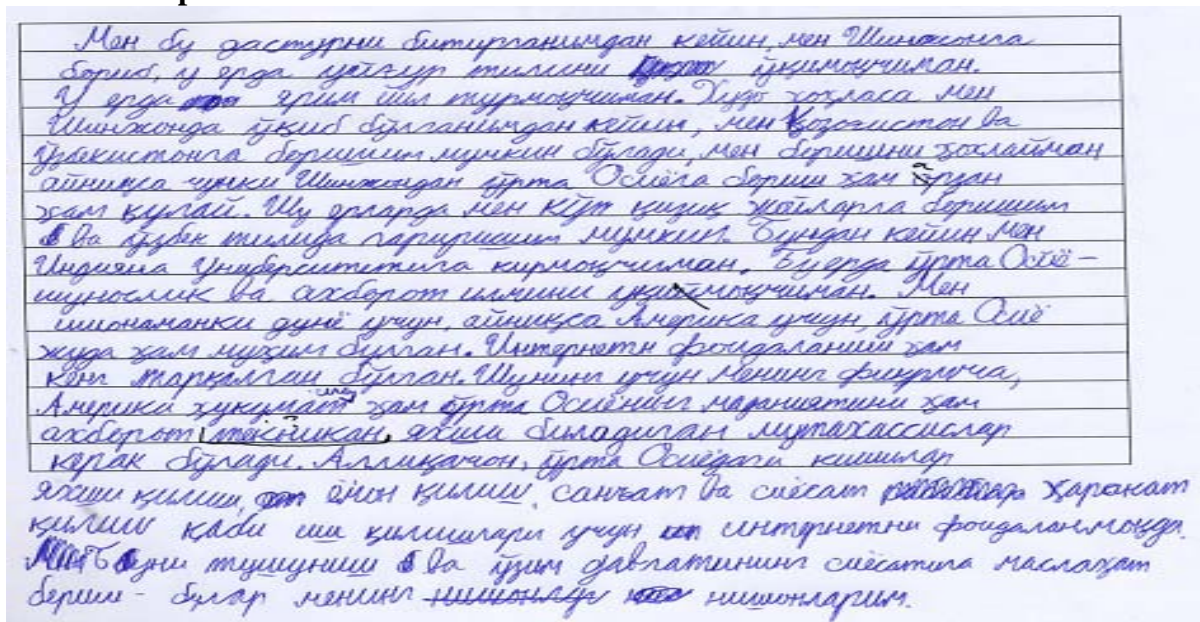 Мен бу дастурни битирганимдан кейин, мен Шинжонга
бориб, у ерда уйғур тилини ўқимоқчиман.
У ерда ярим йил турмоқчиман. Худо хоҳласа мен
Шинжонда ўқиб бўлганимдан кейин, мен Қозоғистон ва
Ўзбекистонга боришим мумкин бўлади, мен боришни хоҳлайман
айниқса чунки Шинжондан ўрта Осиёга бориш ҳам арзан
ҳам қулай. Шу ерларда мен кўп қизиқ жойларга боришим
ва ўзбек тилида гапиришим мумкин. Бундан кейин мен
Индияна Университетига кирмоқчиман. Бу ерда ўрта Осиё-
шунослик ва ахборот илмини ўқитмоқчиман. Мен
ишонаманки дунё учун, айниқса Америка учун, ўрта Осиё
жуда ҳам муҳим бўлган. Интернетн фоидаланиш ҳам
кенг тарқалган бўлган. Шунинг учун менинг фикримча,
Америка ҳукумат ҳам ўрта Осиёнинг маданиятини ҳам
ахборот текникан, яхши биладиган мутахассислар
керак бўлади. Аллиқачон, ўрта Осиёдаги кишилар
яхши қилиш, ёмон қилиш, санъат ва сиёсат ҳаракат
қилиш каби иш қилишлари учун интернетни фоидаланмоқда.
Буни тушуниш ва ўзим давлатининг сиёсатига маслаҳат
бериш - булар менинг нишонларим.